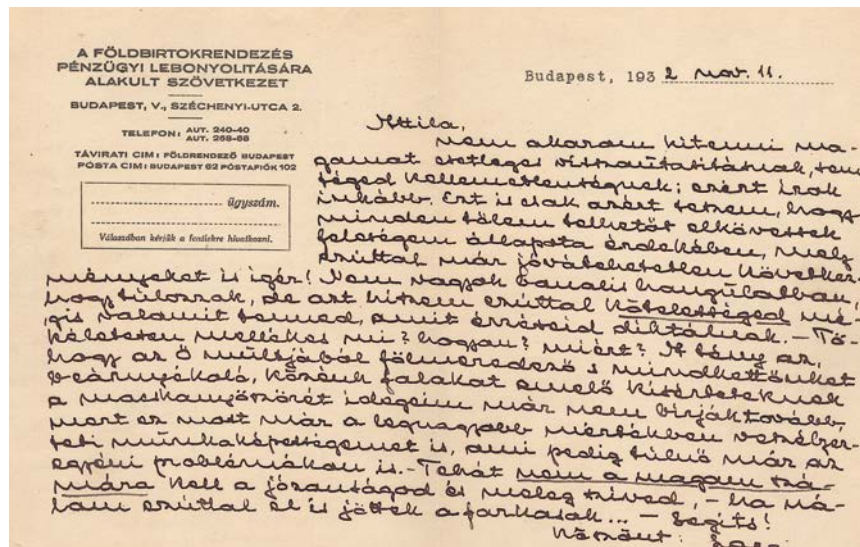 A FÖLDBIRTOKRENDEZÉS
PÉNZÜGYI LEBONYOLITÁSÁRA
ALAKULT SZÖVETKEZET
BUDAPEST, V., SZÉCHENYI-UTCA 2.
TELEFON: AUT. 240-40
AUT. 268-88
TÁVIRATI CIM: FÖLDRENDEZŐ BUDAPEST
POSTA CIM: BUDAPEST 62 POSTAFIÓK 102
ügyszám.
Válaszában kérjük a fentiekre hivatkozni.
Budapest, 1932 nov. 11.
Attila,
nem akarom kitenni ma-
gamat esetleges visszautasításnak, sem
téged kellemetlenségnek; ezért írok
inkább. Ezt is csak azért teszem, hogy
minden tőlem telhetőt elkövessek
feleségem állapota érdekében, mely
ezúttal már jóvátehetetlen következ-
ményeket is igér! Nem vagyok banalis hangulatban,
hogy túlozzak, de azt hiszem ezúttal kötelességed mé-
gis valamit tenned, amit érzéseid diktálnak. – Tö-
kéletesen mellékes mi? hogyan? miért? A tény az,
hogy az ő multjából fölmeredező s mindkettőnket
beárnyékoló, közénk falakat emelő kisérteteknek
a idegeim már nem birják tovább,
mert ez most már a legnagyobb mértékben veszélyez-
teti munkaképességemet is, ami pedig túlnő már az
egyéni problémákon is. – Tehát nem a magam szá-
mára kell a józanságod és meleg szived, – ha ná-
lam ezúttal el is jöttek a farkasok... – Segíts!
Köszönt: